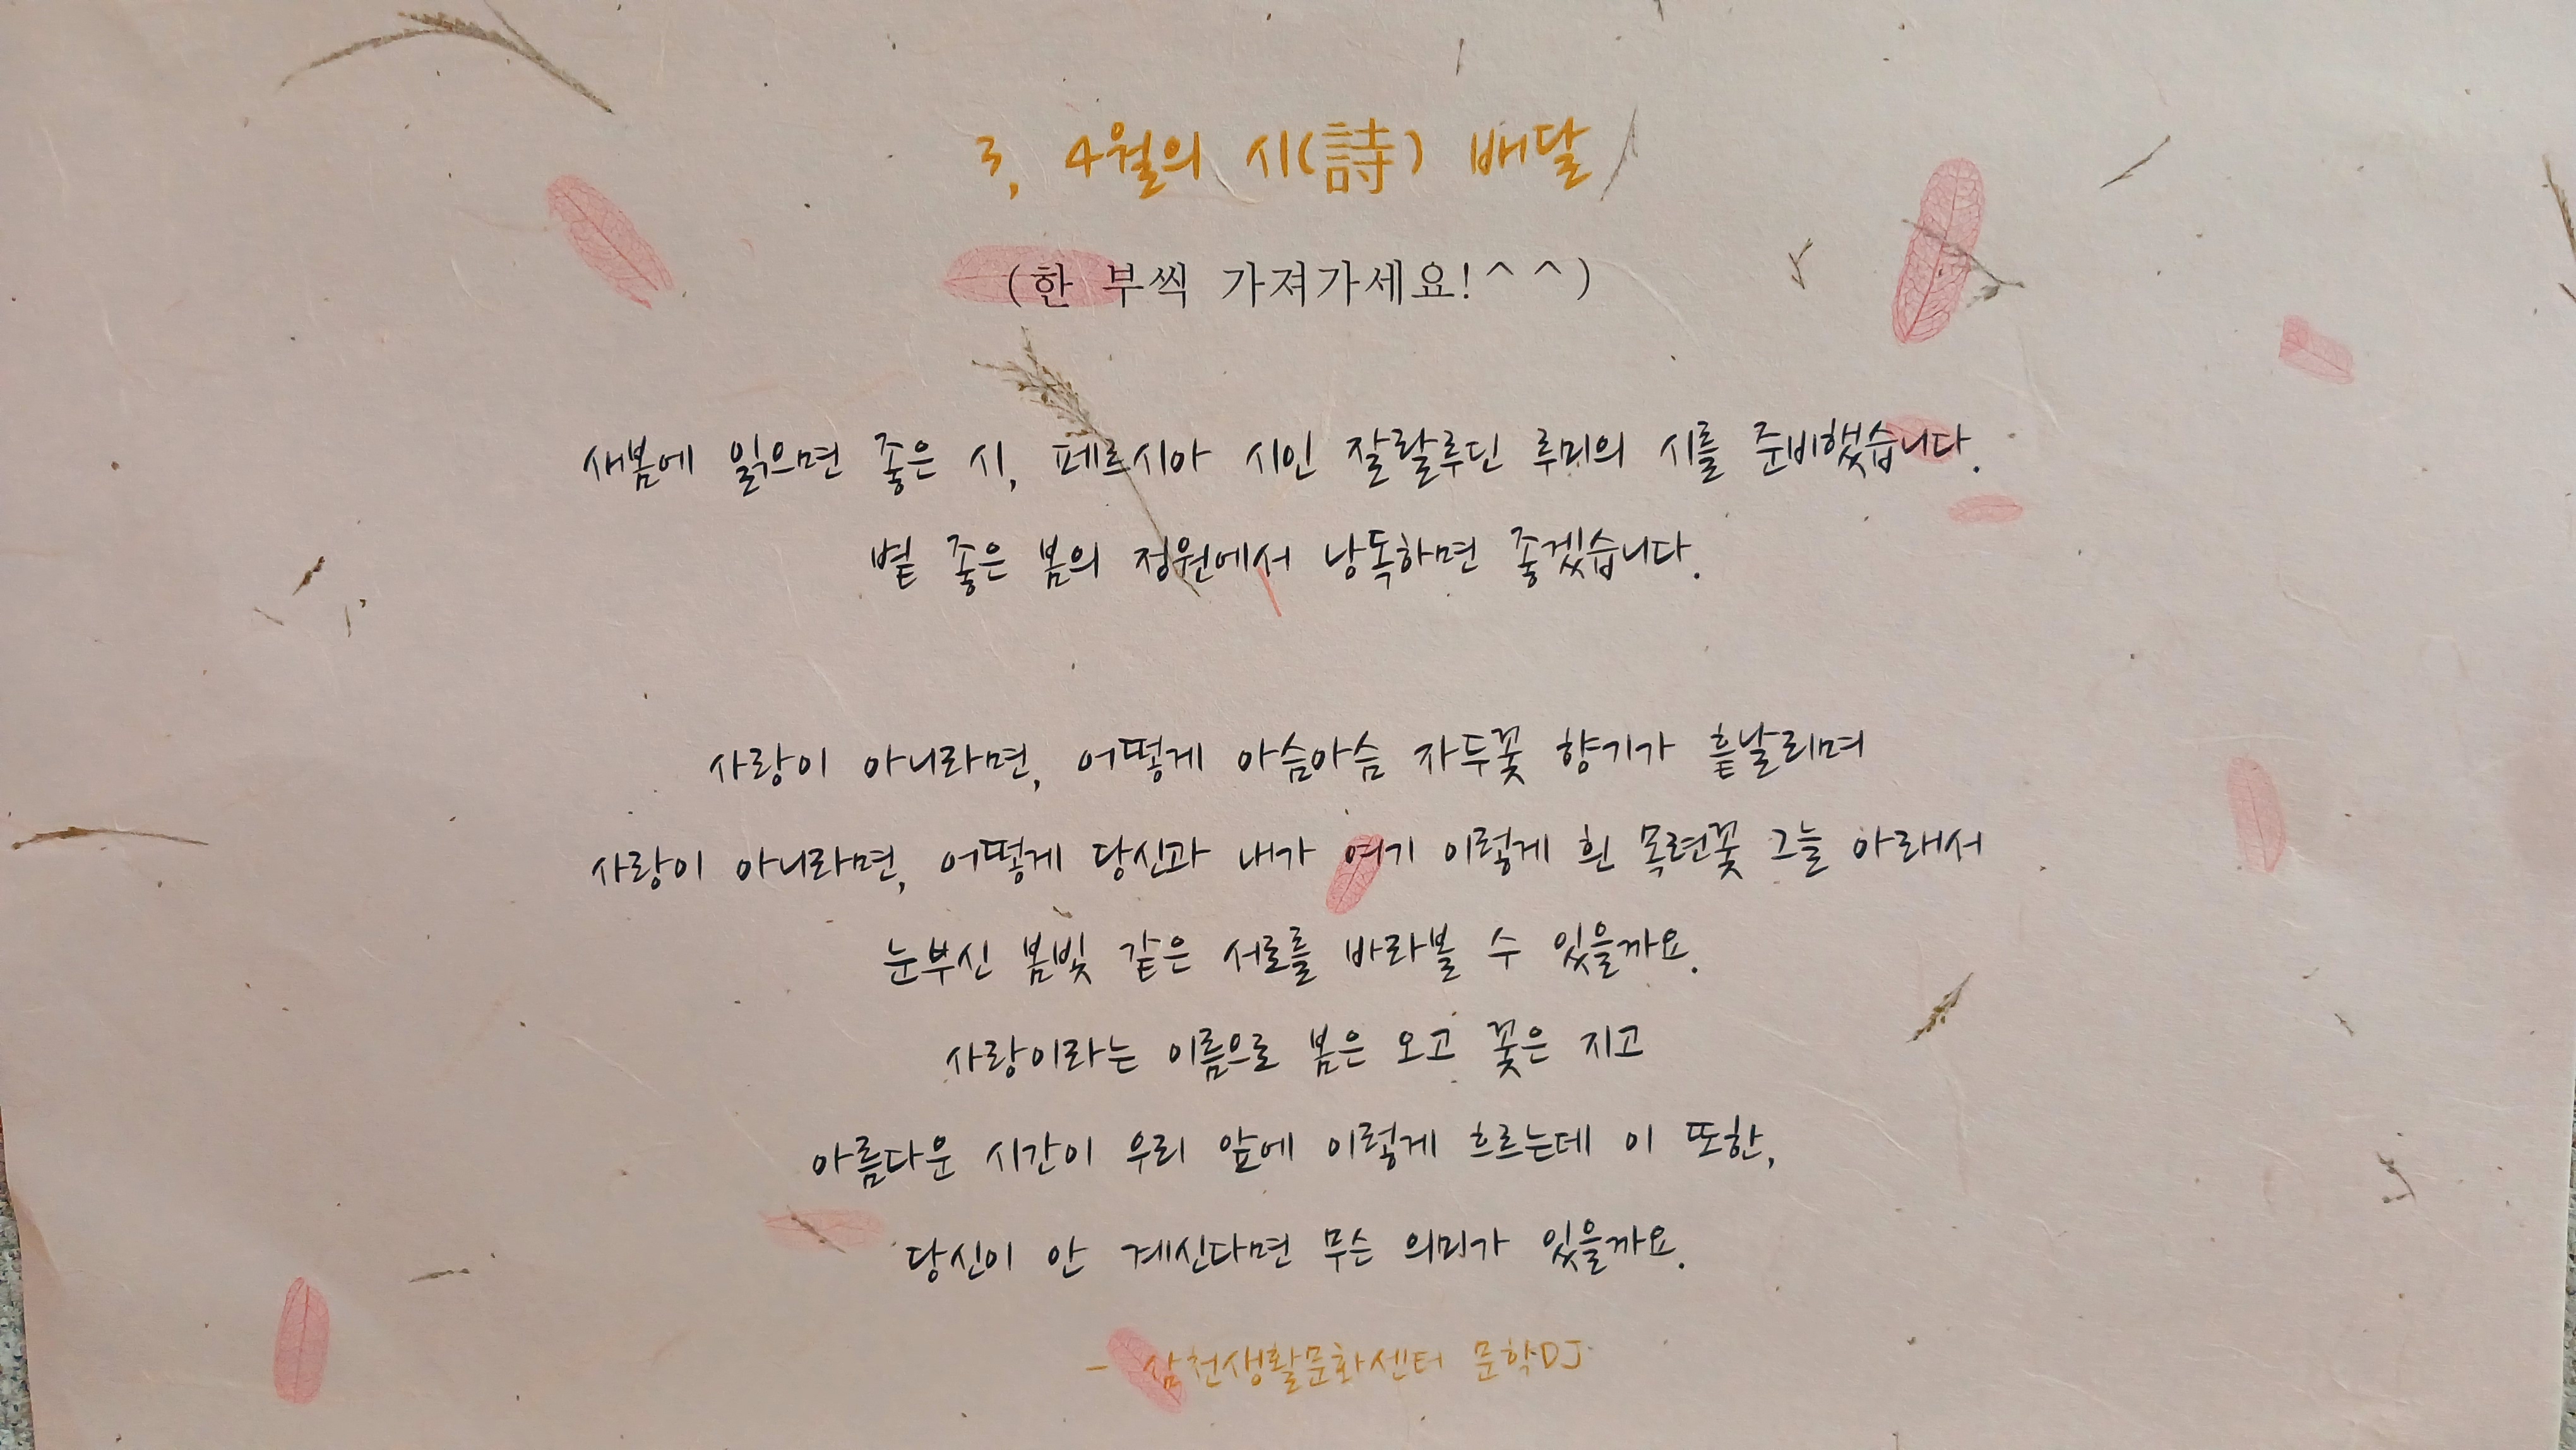 3, 4월의 시(詩) 배달
(한 부씩 가져가세요!^^)
새봄에 읽으면 좋은 시, 페르시아 시인 잘랄루딘 루미의 시를 준비했습니다.
볕 좋은 봄의 정원에서 낭독하면 좋겠습니다.
사랑이 아니라면, 어떻게 아슴아슴 자두꽃 향기가 흩날리며
사랑이 아니라면, 어떻게 당신과 내가 여기 이렇게 흰 목련꽃 그늘 아래서
눈부신 봄빛 같은 서로를 바라볼 수 있을까요.
사랑이라는 이름으로 봄은 오고 꽃은 지고
아름다운 시간이 우리 앞에 이렇게 흐르는데 이 또한,
당신이 안 계신다면 무슨 의미가 있을까요.
- 삼천생활문화센터 문학DJ